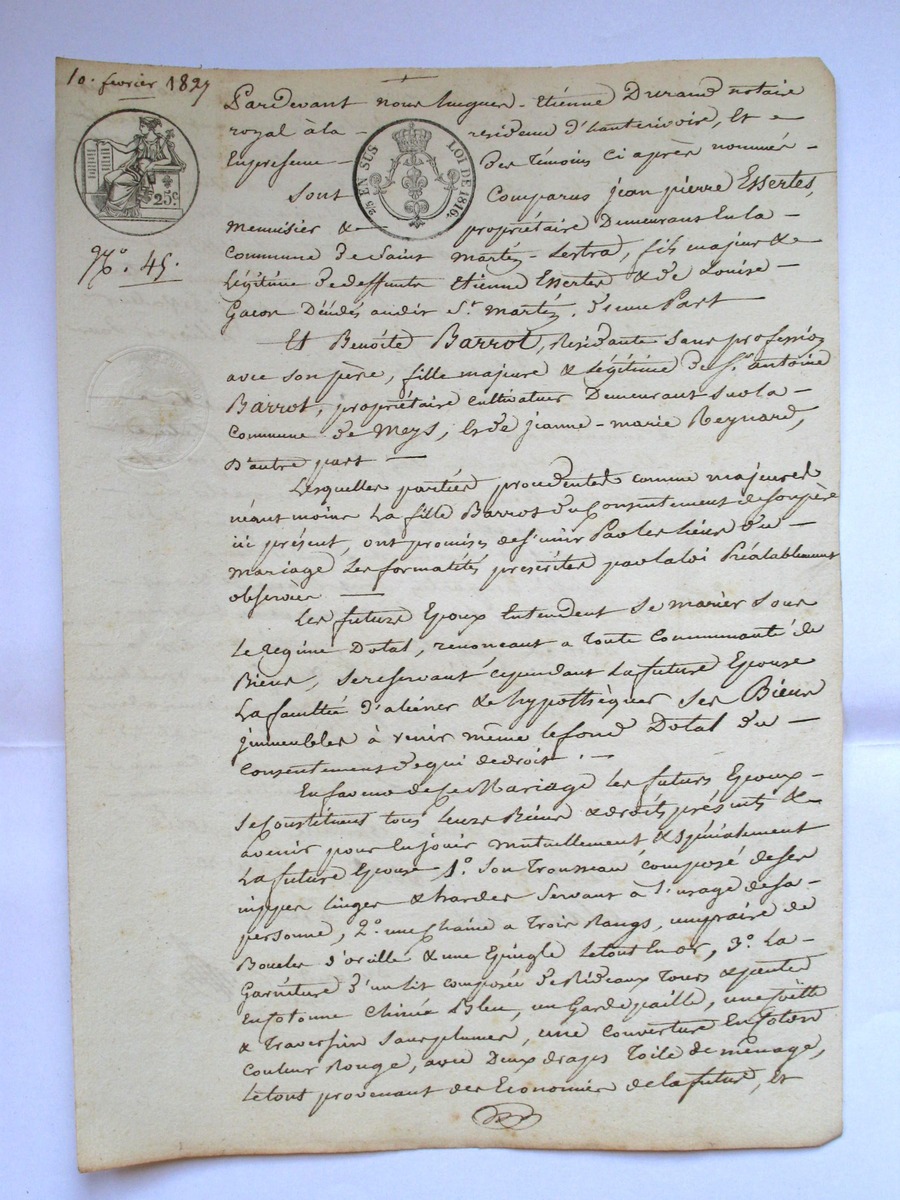 10. fevrier 1827
25 EN SUS LOI DE 1816.
25c
No. 45.
Pardevant nous hugues-Etienne Durand notaire
royal à la - residence d'hauterivoir, Et e
En presence - des témoins ci après nommés -
Sont Comparus jean pierre Essertes,
menuisier & propriétaire Demeurant En la -
commune de Saint Martin-Lestra, fils majeur &
Légitime de deffunts Etienne Essertes & de Louise -
Gacon Décédés audit St. Martin, d'une Part
Et Benoite Barrot, Residante sans profession
avec son père, fille majeure & Légitime de Sr. antoine
Barrot, propriétaire cultivateur Demeurant sur la -
commune de Meys, & de jeanne-marie Reynard,
D'autre part -
Lesquelles parties procedantes comme majeures
néant moins La fille Barrot du Consentement de son père
ici présent, ont promis de s'unir Par les liens du -
mariage Les formalités préscrites par la loi Préalablement
observées -
Les futurs Epoux Entendent se marier sous
Le Regime Dotal, renoncant a Toute Communauté de
Biens, se reservant cependant La future Epouse
La faculté d'aliéner & hypothèquer ses Biens
jmmeubles à venir même le fond Dotal du -
Consentement de qui de droit. -
En faveur de ce Mariage les futurs Epoux -
se Constituent tous Leurs Biens & droits présents &
avenir pour En jouir mutuellement & spécialement
La future Epouse 1o. son Trousseau composé de ses
nippes linges & hardes servant à l'usage de sa -
personne, 2o. une Chaine a Trois Rangs, une paire de
Boucles d'oreille & une Epingle le tout En or, 3o. La -
Garniture d'un lit composée de Rideaux Tours & pente
En Cotonne Chinée Bleu, un Garde paille,
& Traversin sans plumes, une couverture En Coton
Couleur Rouge, avec Deux draps Toile de ménage,
le tout provenant des Economies de la future, Et